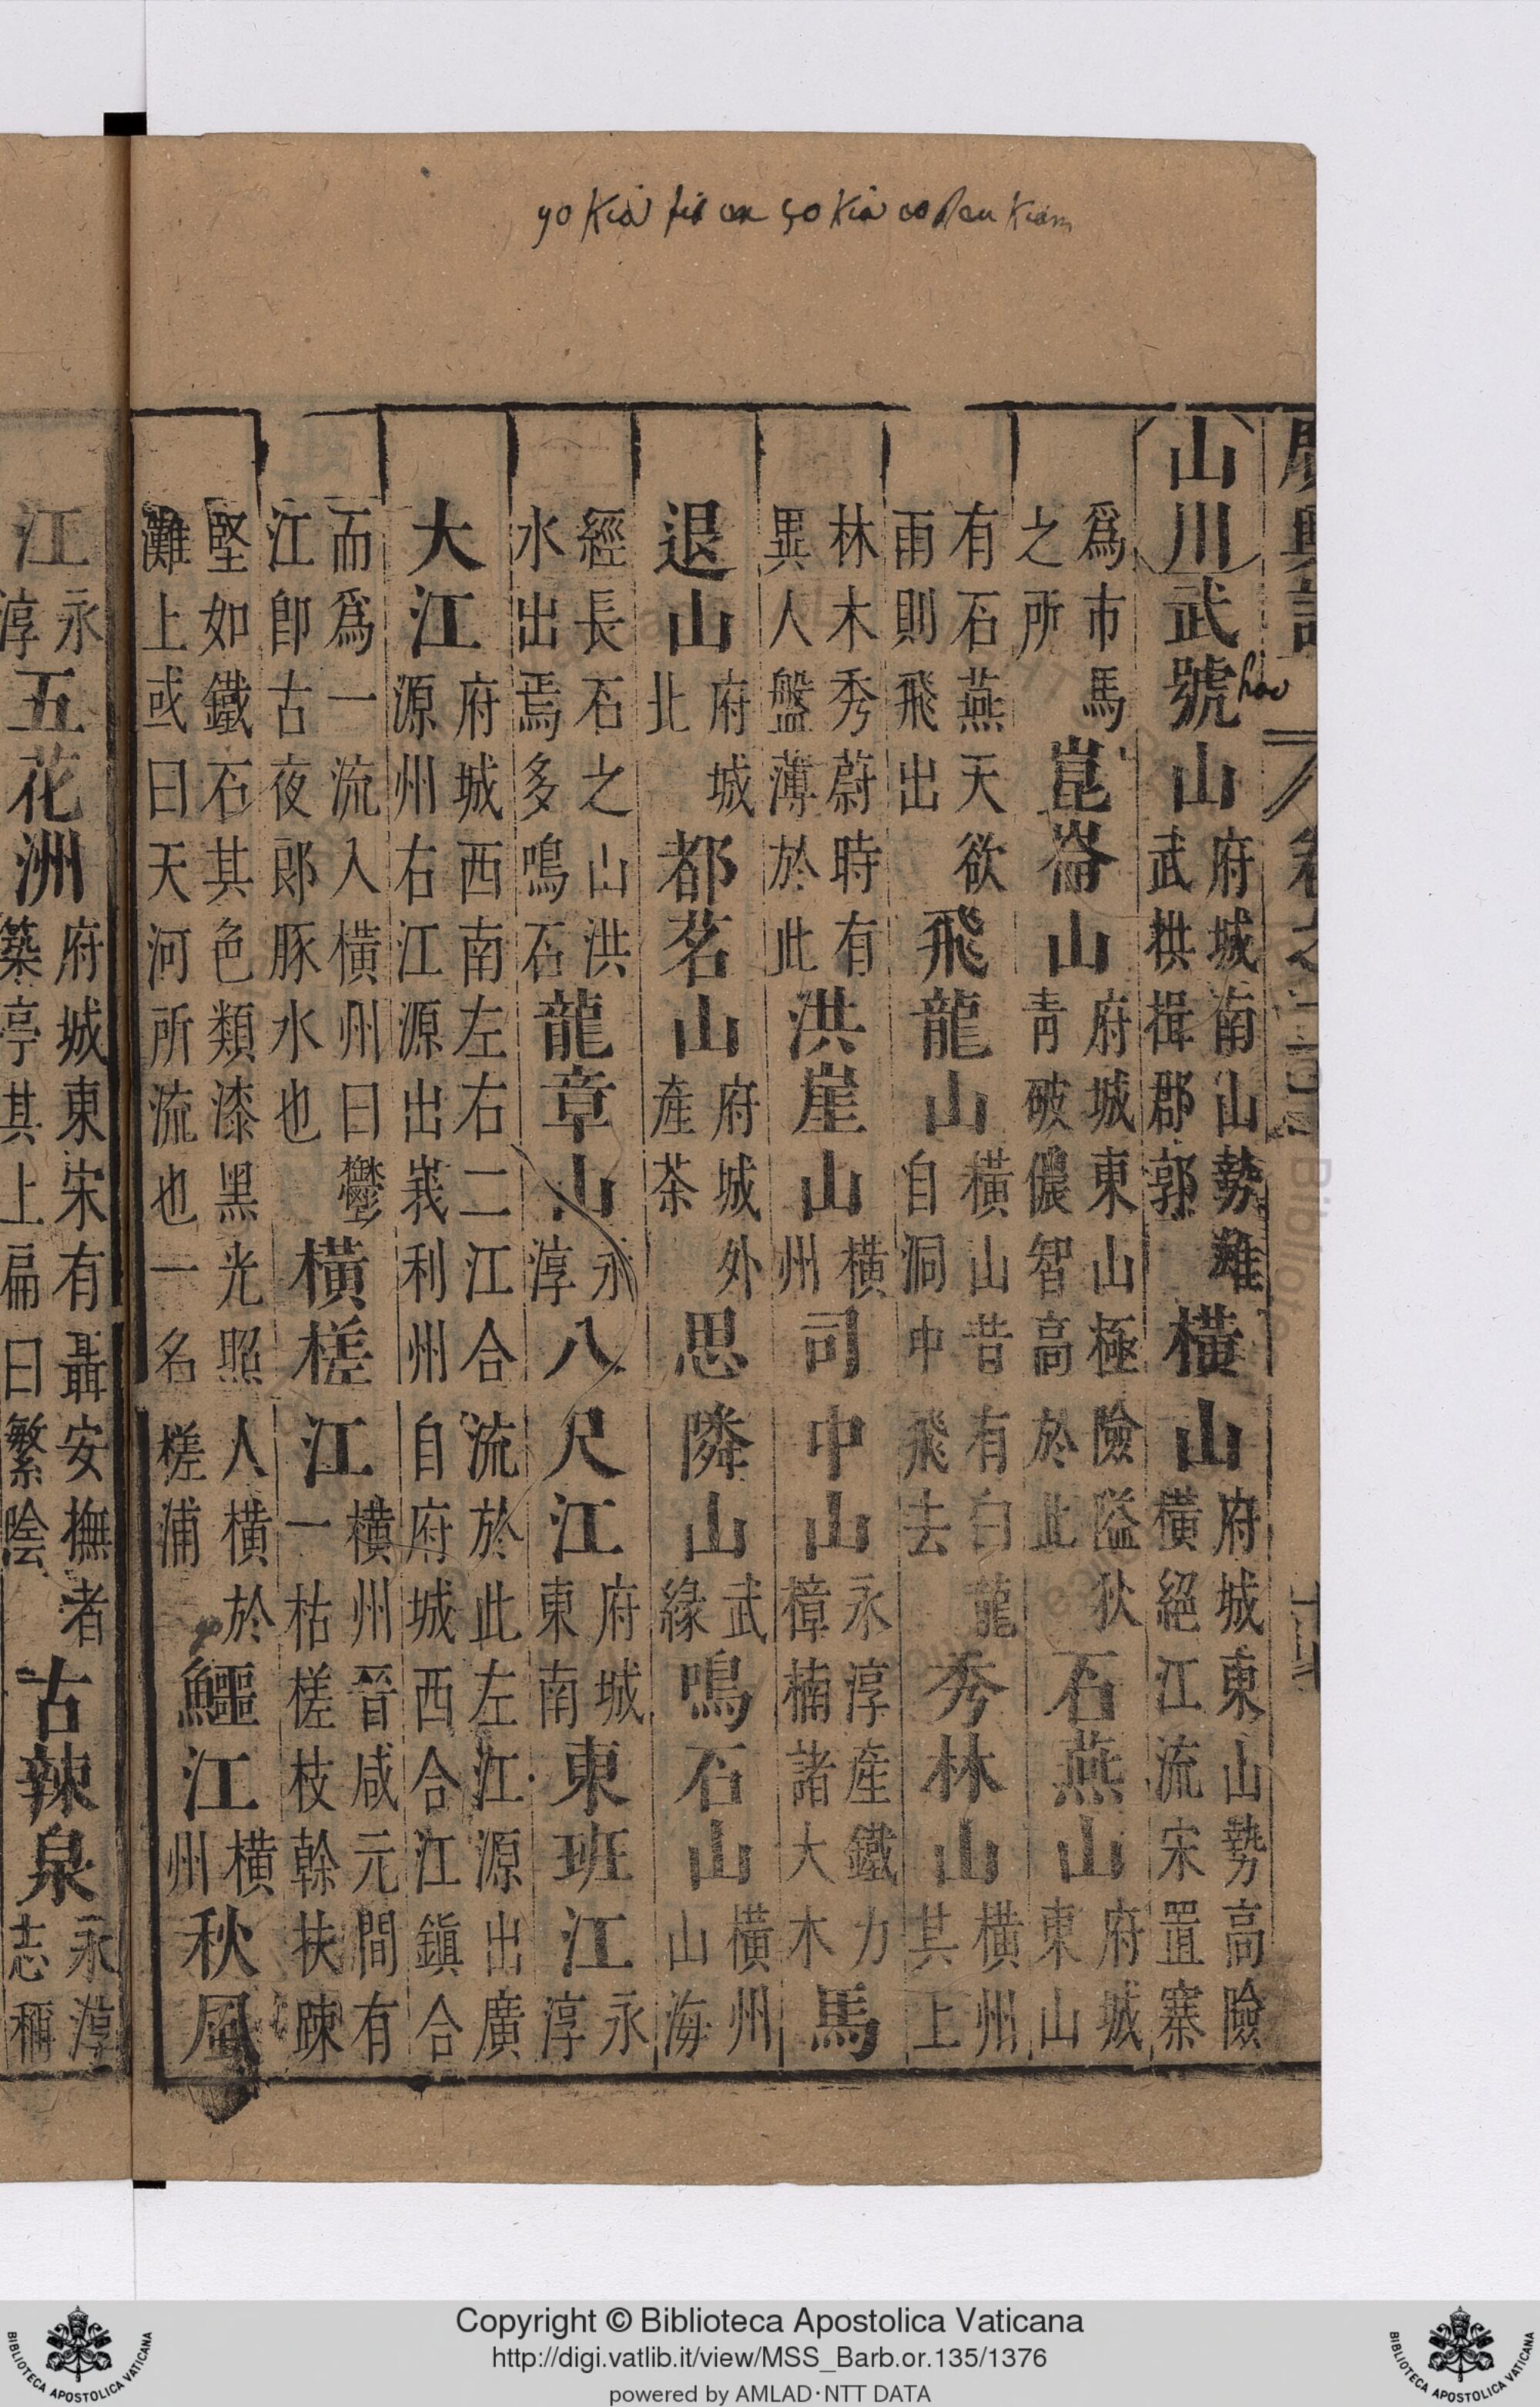 山川武號山府城南山勢雄武拱揖郡郭橫山府城東山勢高險橫絕江流宋置寨
爲市馬之所崑崙山府城東山極險隘狄青破儂智高於此石燕山府城東山
有石燕天欲雨則飛出飛龍山橫山昔有白龍自洞中飛去秀林山橫州其上
林木秀蔚時有異人盤薄於此洪崖山橫州司中山永淳產鐵力樟楠諸大木馬
退山府城北都茗山府城外產茶思隣山武緣鳴石山橫州山海
經長石之山洪水出焉多鳴石龍章山永淳八尺江府城東南東班江永淳
大江府城西南左右二江合流於此左江源出廣源州右江源出峩利州自府城西合江鎮合
而爲一流入橫州曰鬱江卽古夜郎豚水也橫槎江橫州晉咸元間有一枯槎枝榦扶疎
堅如鐵石其色類漆黑光照人橫於灘上或曰天河所流也一名槎浦鱷江橫州秋風
江永淳五花洲府城東宋有聶安撫者築亭其上扁曰繁陰古辣泉永淳志稱
Copyright © Biblioteca Apostolica Vaticana
http://digi.vatlib.it/view/MSS_Barb.or.135/1376
powered by AMLAD·NTT DATA
BIBLIOTECA APOSTOLICA VATICANA
BIBLIOTECA APOSTOLICA VATICANA